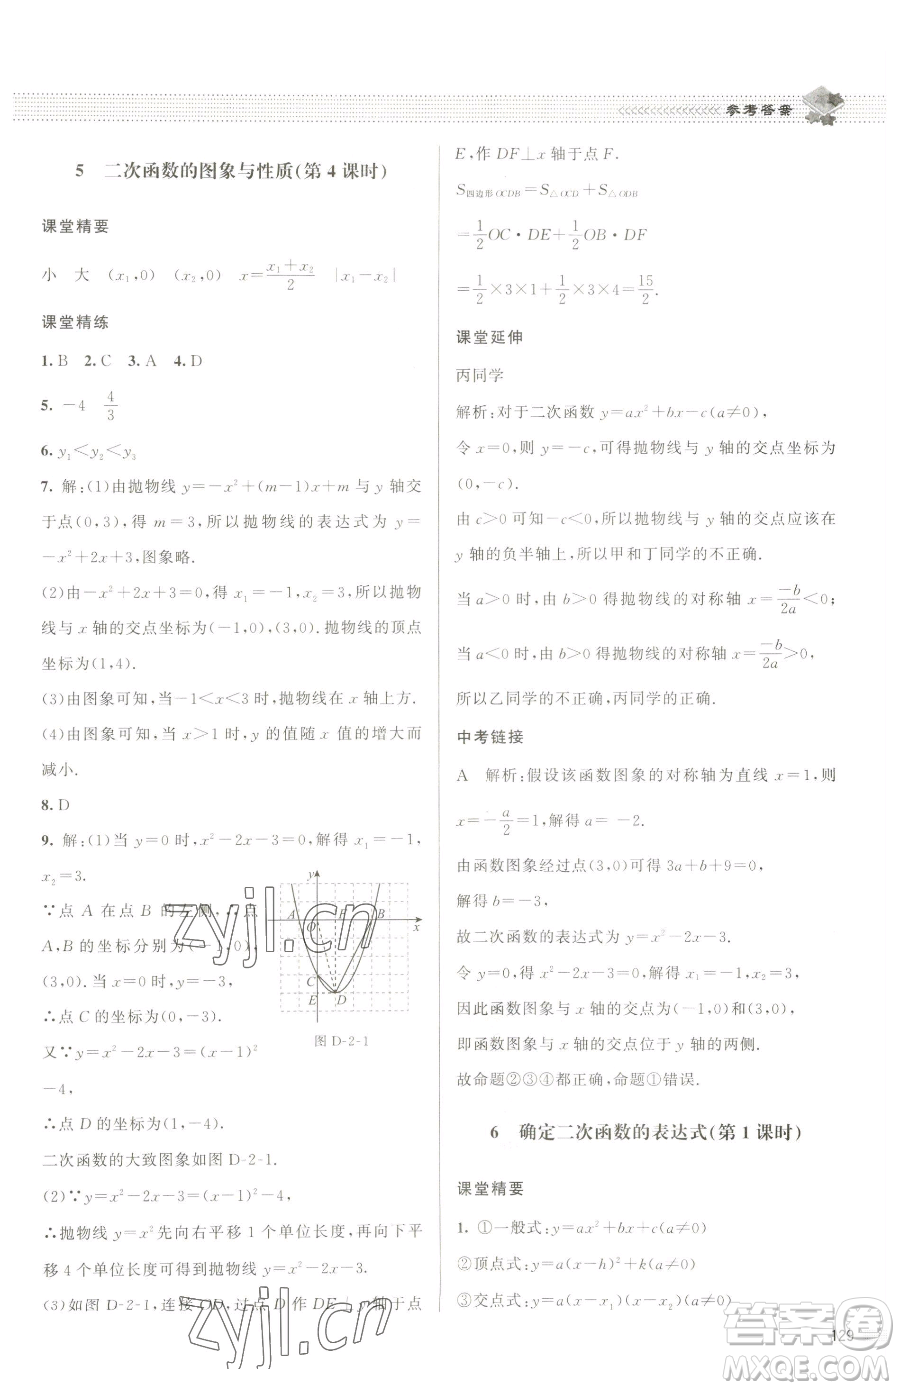 参考答案
5 二次函数的图象与性质(第 4 课时)
课堂精要
小 大 (x₁,0) (x₂,0) x=(x₁+x₂)/2 |x₁-x₂|
课堂精练
1. B 2. C 3. A 4. D
5. -4 4/3
6. y₁<y₂<y₃
7. 解:(1)由抛物线 y=-x²+(m-1)x+m 与 y 轴交
于点(0,3),得 m=3,所以抛物线的表达式为 y=
-x²+2x+3,图象略.
(2)由-x²+2x+3=0,得 x₁=-1,x₂=3,所以抛物
线与 x 轴的交点坐标为(-1,0),(3,0).抛物线的顶点
坐标为(1,4).
(3)由图象可知,当-1<x<3 时,抛物线在 x 轴上方.
(4)由图象可知,当 x>1 时,y 的值随 x 值的增大而
减小.
8. D
9. 解:(1)当 y=0 时,x²-2x-3=0,解得 x₁=-1,
x₂=3.
∵点 A 在点 B 的左侧,∴点
A,B 的坐标分别为(-1,0),
(3,0).当 x=0 时,y=-3,
∴点 C 的坐标为(0,-3).
又∵y=x²-2x-3=(x-1)²
-4,
∴点 D 的坐标为(1,-4).
二次函数的大致图象如图 D-2-1.
y
A O F B x
C
E D
图 D-2-1
(2)∵y=x²-2x-3=(x-1)²-4,
∴抛物线 y=x²先向右平移 1 个单位长度,再向下平
移 4 个单位长度可得到抛物线 y=x²-2x-3.
(3)如图 D-2-1,连接 OD,过点 D 作 DE⊥y 轴于点
E,作 DF⊥x 轴于点 F.
S四边形OCDB=S△OCD+S△ODB
=1/2 OC·DE+1/2 OB·DF
=1/2×3×1+1/2×3×4=15/2.
课堂延伸
丙同学
解析:对于二次函数 y=ax²+bx-c(a≠0),
令 x=0,则 y=-c,可得抛物线与 y 轴的交点坐标为
(0,-c).
由 c>0 可知-c<0,所以抛物线与 y 轴的交点应该在
y 轴的负半轴上,所以甲和丁同学的不正确.
当 a>0 时,由 b>0 得抛物线的对称轴 x=-b/2a<0;
当 a<0 时,由 b>0 得抛物线的对称轴 x=-b/2a>0,
所以乙同学的不正确,丙同学的正确.
中考链接
A 解析:假设该函数图象的对称轴为直线 x=1,则
x=-a/2=1,解得 a=-2.
由函数图象经过点(3,0)可得 3a+b+9=0,
解得 b=-3.
故二次函数的表达式为 y=x²-2x-3.
令 y=0,得 x²-2x-3=0,解得 x₁=-1,x₂=3,
因此函数图象与 x 轴的交点为(-1,0)和(3,0),
即函数图象与 x 轴的交点位于 y 轴的两侧.
故命题②③④都正确,命题①错误.
6 确定二次函数的表达式(第 1 课时)
课堂精要
1. ①一般式:y=ax²+bx+c(a≠0)
②顶点式:y=a(x-h)²+k(a≠0)
③交点式:y=a(x-x₁)(x-x₂)(a≠0)
129
zyjl.cn
zyjl.cn
答案圈
MXQE.COM